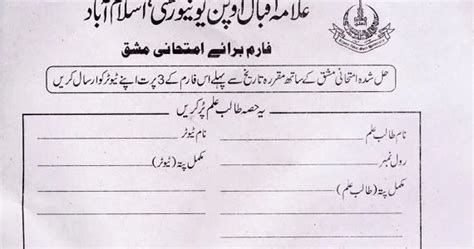 علامہ اقبال اوپن یونیورسٹی، اسلام آباد
فارم برائے امتحانی مشق
حل شدہ امتحانی مشق کے ساتھ مقررہ تاریخ سے پہلے اس فارم کے 3 پرت اپنے ٹیوٹر کو ارسال کریں
یہ حصہ طالب علم پُر کریں
نام طالب علم
نام ٹیوٹر
رول نمبر
مکمل پتہ (ٹیوٹر)
مکمل پتہ (طالب علم)